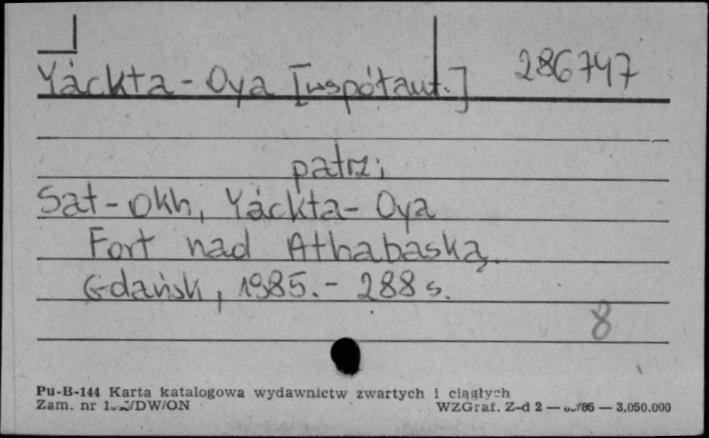 Yáckta-Oya [współaut.] 286747
patrz:
Sat-Okh, Yáckta-Oya
Fort nad Athabaską.
Gdańsk, 1985.- 288 s.
8
Pu-B-144 Karta katalogowa wydawnictw zwartych i ciągłych
Zam. nr /DW/ON WZGraf. Z-d 2 — /85 — 3.050.000